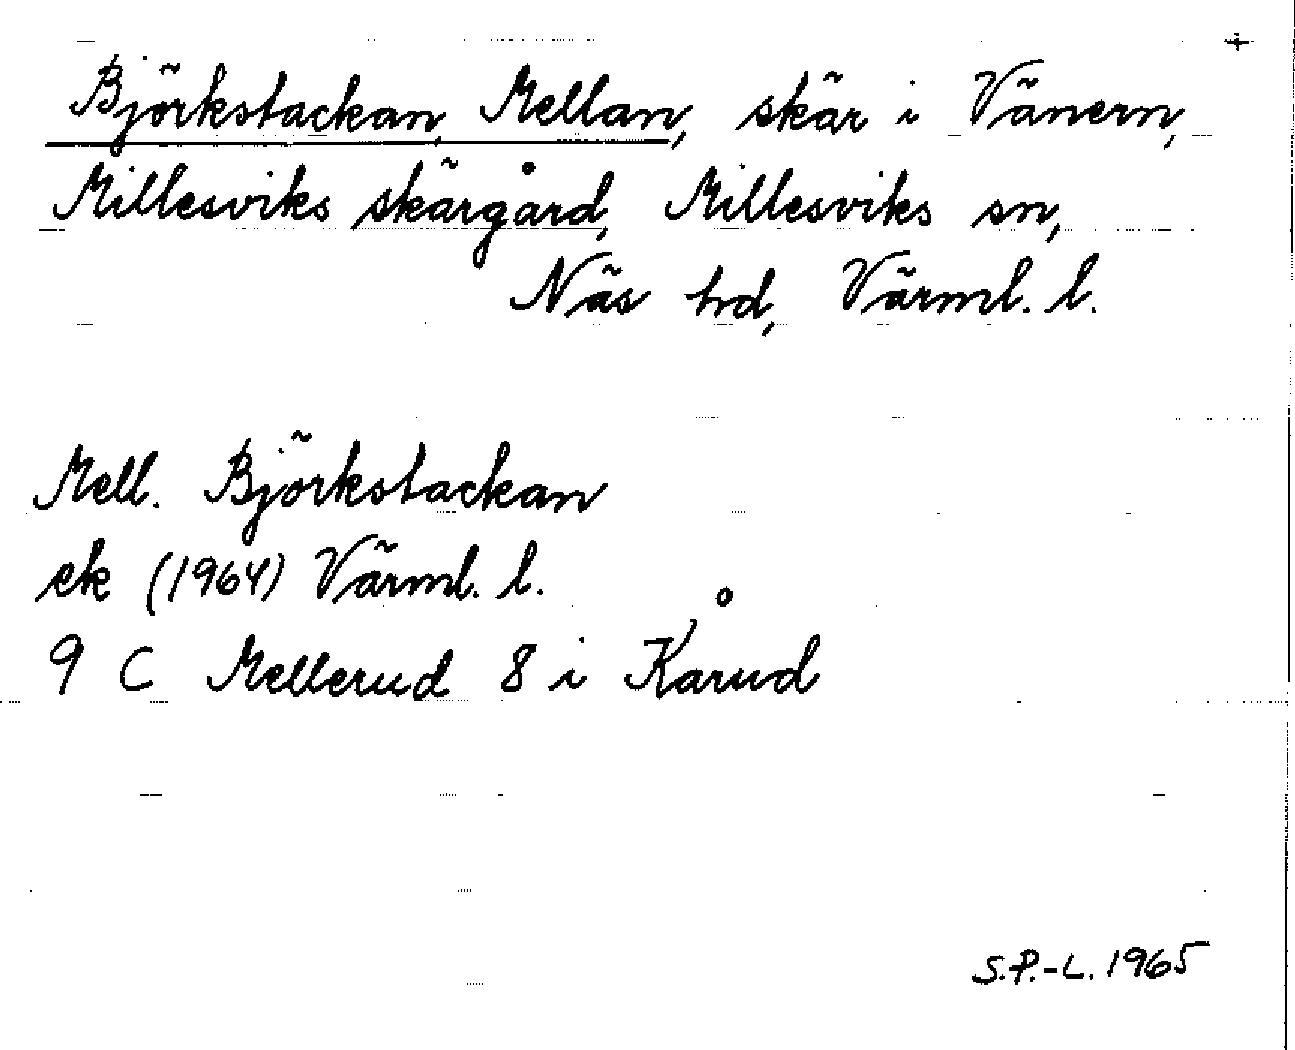 +
Björkstackan, Mellan, skär i Vänern,
Millesviks skärgård, Millesviks sn,
Näs hd, Värml. l.
Mell. Björkstackan
ek (1964) Värml. l.
9 C Mellerud 8 i Kårud
S.P.-L. 1965